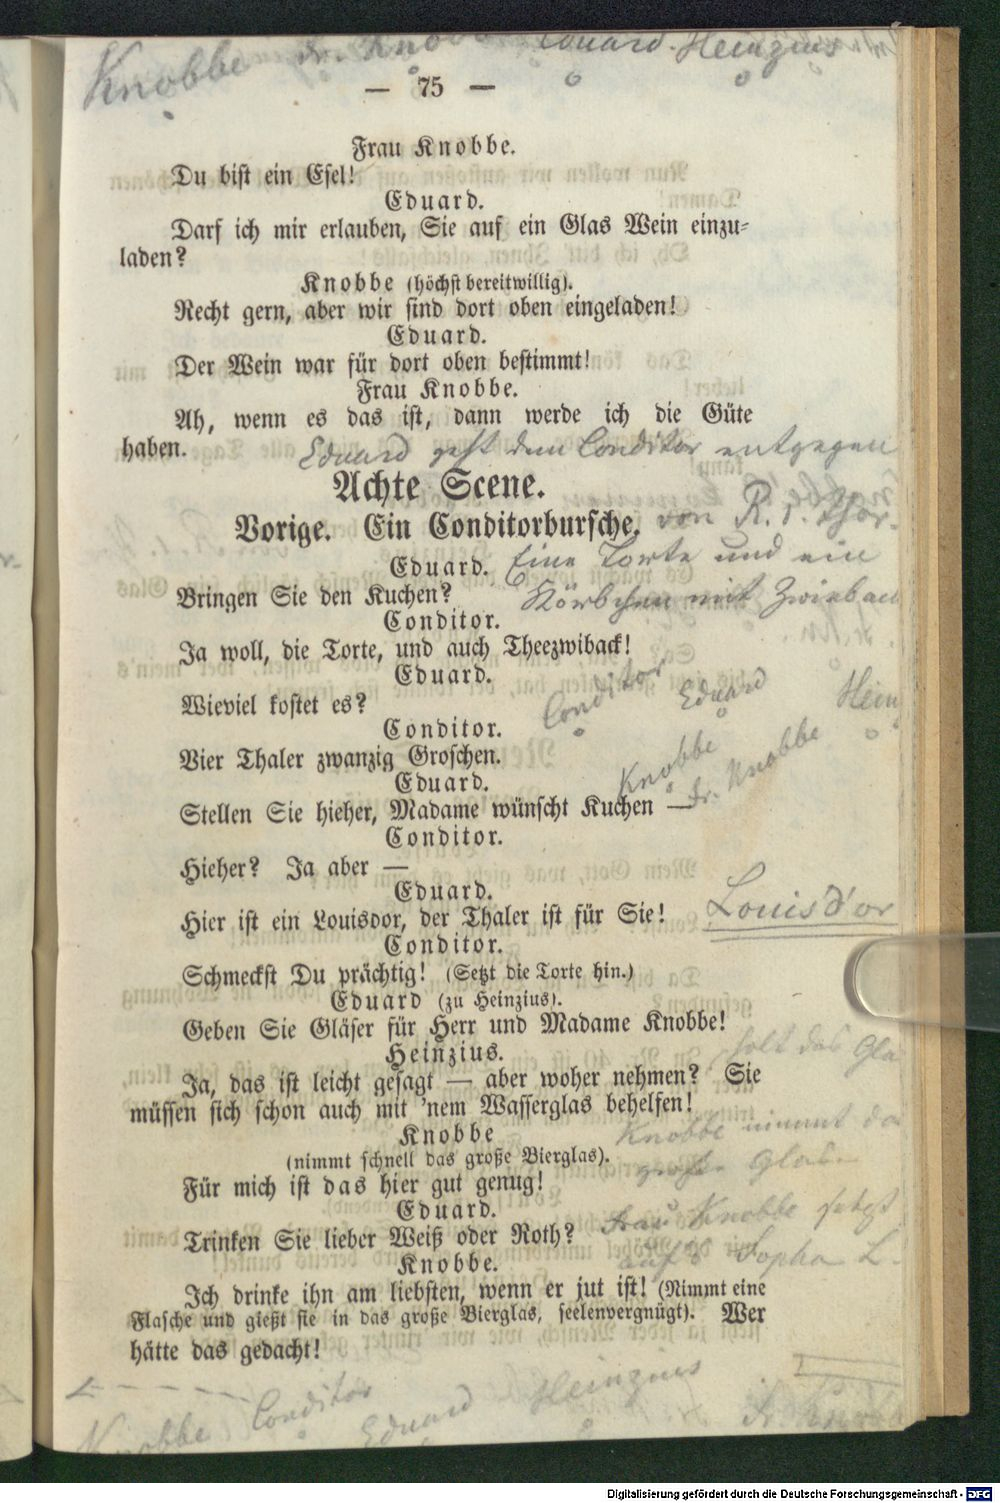 Knobbe Fr. Knobbe Eduard. Heinzius
— 75 —
Frau Knobbe.
Du bist ein Esel!
Eduard.
Darf ich mir erlauben, Sie auf ein Glas Wein einzu-
laden?
Knobbe (höchst bereitwillig).
Recht gern, aber wir sind dort oben eingeladen!
Eduard.
Der Wein war für dort oben bestimmt!
Frau Knobbe.
Ah, wenn es das ist, dann werde ich die Güte
haben.
Eduard geht dem Conditor entgegen
Achte Scene.
Vorige. Ein Conditorbursche.
von R. 1. Thor.
Eduard.
Eine Torte und ein
Bringen Sie den Kuchen?
Körbchen mit Zwieback
Conditor.
Ja woll, die Torte, und auch Theezwiback!
Eduard.
Wieviel kostet es?
Conditor Eduard Hein
Conditor.
Vier Thaler zwanzig Groschen.
Knobbe Fr. Knobbe
Eduard.
Stellen Sie hieher, Madame wünscht Kuchen —
Conditor.
Hieher? Ja aber —
Eduard.
Hier ist ein Louisdor, der Thaler ist für Sie!
Louisd'or
Conditor.
Schmeckst Du prächtig! (Setzt die Torte hin.)
Eduard (zu Heinzius).
Geben Sie Gläser für Herr und Madame Knobbe!
holt das Gla
Heinzius.
Ja, das ist leicht gesagt — aber woher nehmen? Sie
müssen sich schon auch mit 'nem Wasserglas behelfen!
Knobbe nimmt da
Knobbe
große Glas.
(nimmt schnell das große Bierglas).
Für mich ist das hier gut genug!
Eduard.
Frau Knobbe setzt
Trinken Sie lieber Weiß oder Roth?
auf's Sopha L.
Knobbe.
Ich drinke ihn am liebsten, wenn er jut ist! (Nimmt eine
Flasche und gießt sie in das große Bierglas, seelenvergnügt). Wer
hätte das gedacht!
Knobbe Conditor Eduard Heinzius Fr. Knobb
Digitalisierung gefördert durch die Deutsche Forschungsgemeinschaft - DFG